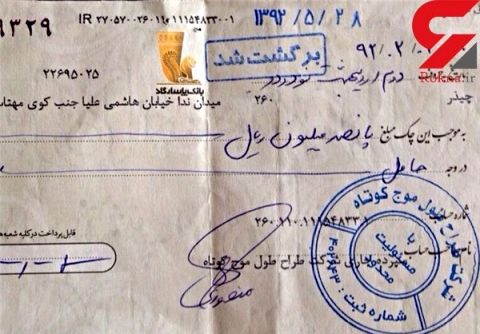 ۹۳۲۹
IR ۲۷۰۵۷۰۰۲۶۰۱۱۰۱۱۱۹۵۴۸۳۳۰۰۱
۱۳۹۲/۵/۲۸
برگشت شد
۹۲/۰۲/
بانک پاسارگاد
Rokna.ir
دوم اردیبهشت نود و دو
۲۲۶۹۵۰۲۵
چیذر
۲۶۰
میدان ندا خیابان هاشمی علیا جنب کوی مهتاب
به موجب این چک مبلغ پانصد میلیون ریال
در وجه حامل
شماره حساب
۲۶۰-۱۱۰-۱۱۱۹۵۴۸۳۳-۱
قابل پرداخت در کلیه شعبه
نام صاحب حساب
شرکت طراح طول موج کوتاه
شرکت طراح طول موج کوتاه
با
مسئولیت
محدود
شماره ثبت: